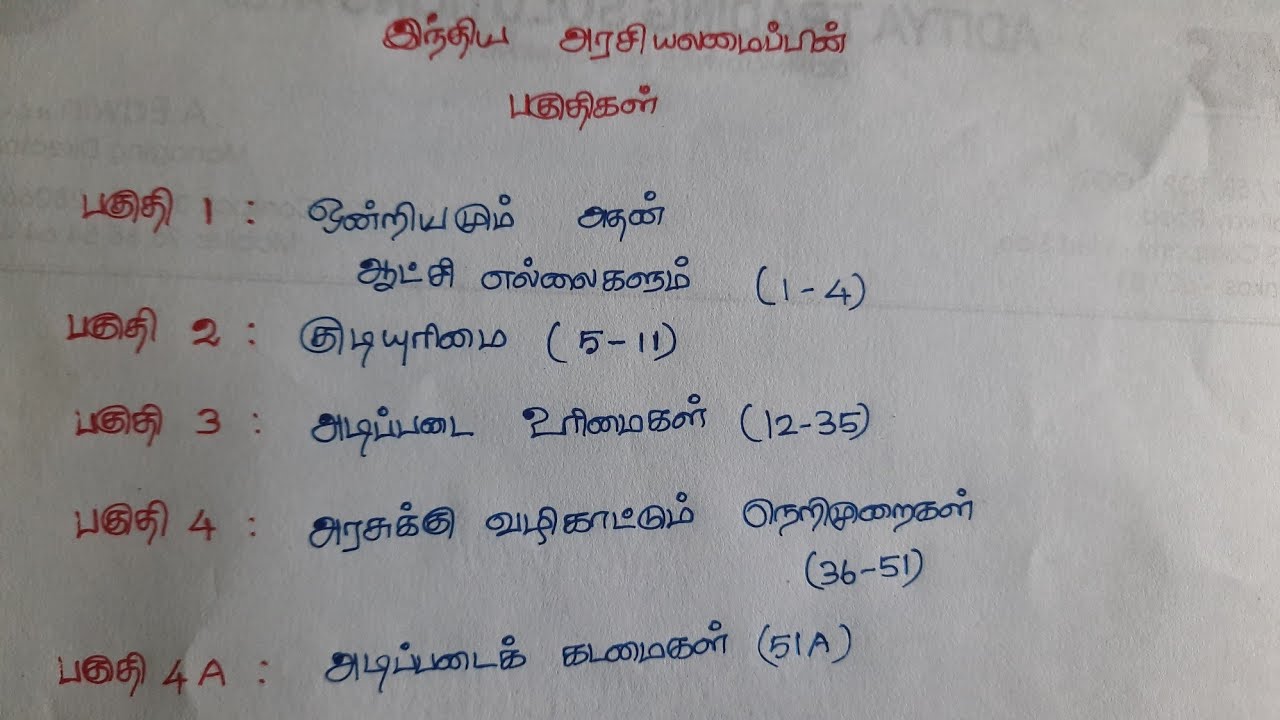 இந்திய அரசியலமைப்பின்
பகுதிகள்
பகுதி 1 : ஒன்றியமும் அதன்
ஆட்சி எல்லைகளும் (1-4)
பகுதி 2 : குடியுரிமை (5-11)
பகுதி 3 : அடிப்படை உரிமைகள் (12-35)
பகுதி 4 : அரசுக்கு வழிகாட்டும் நெறிமுறைகள்
(36-51)
பகுதி 4A : அடிப்படைக் கடமைகள் (51A)